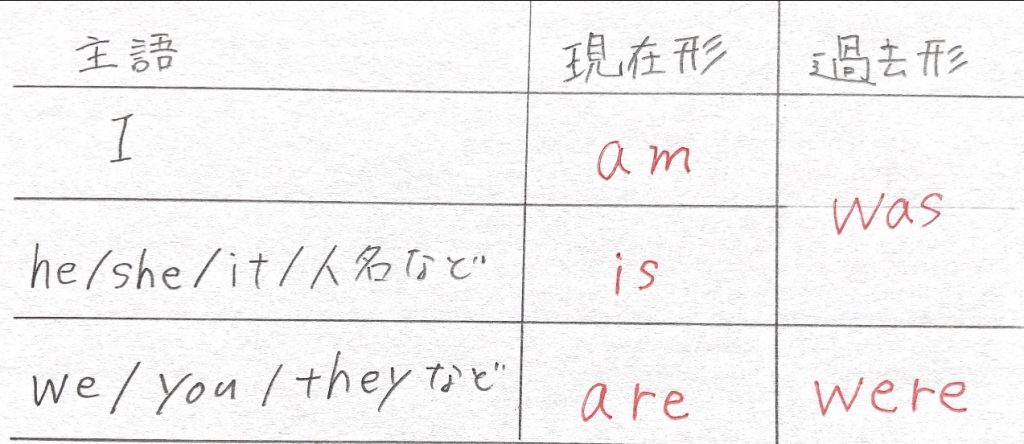 主語 現在形 過去形
I am
was
he/she/it/人名など is
we/you/theyなど are were